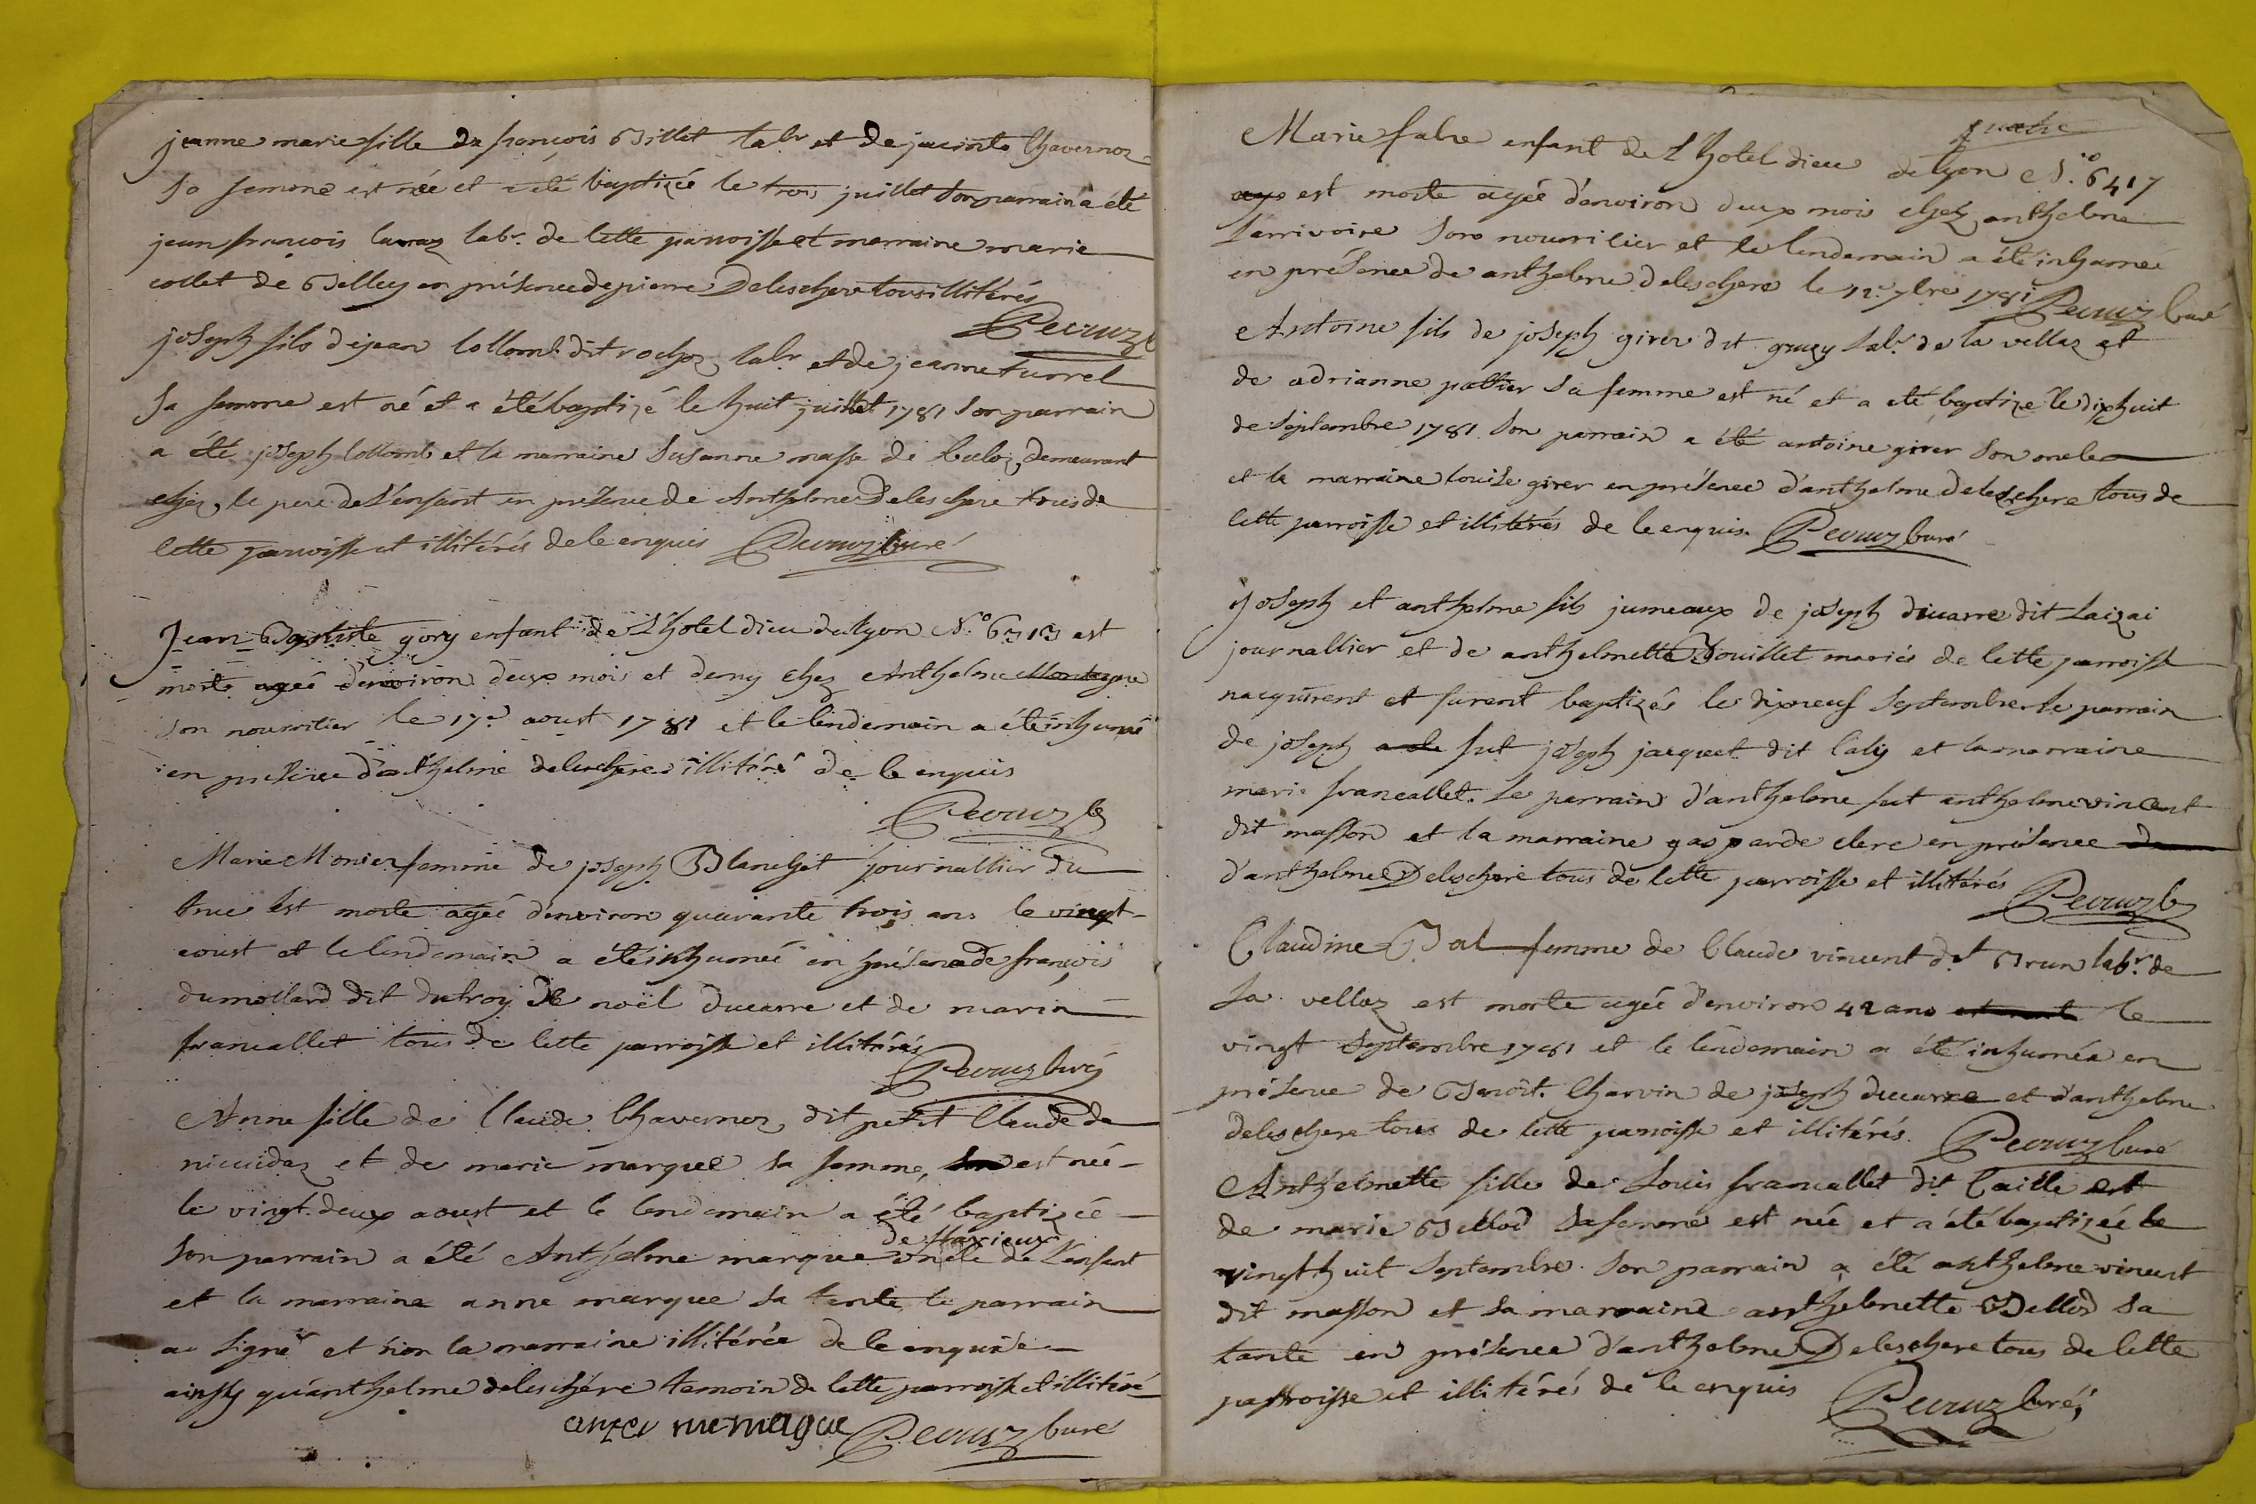 jeanne marie fille de françois Billet labr et de jacinte Chavernoz
sa femme est née et a été baptizée le trois juillet son parrain a été
jean françois labr. de cette parroisse et marraine marie
collet de Belley en présence de pierre Deleschere tous illitérés
Pecruz c
joseph fils de jean Collomb dit rochez labr et de jeanne turrel
sa femme est né et a été baptizé le huit juillet 1781 son parrain
a été joseph Collomb et la marraine Susanne masse de Culoz, demeurant
chez le pere de L'enfant en présence de Anthelme Deleschere tous de
cette parroisse et illitérés de ce enquis Pecruz curé
Jean Baptiste gory enfant de L'hotel dieu de lyon N.o 6313 est
morte agé d'environ deux mois et demy chez Anthelme Montagne
son nourritier le 17e aoust 1781 et le lendemain a été inhumé
en présence d'anthelme deleschere illitéré de ce enquis
Pecruz c
Marie Monier femme de joseph Blanchet journallier du
truc est morte agée d'environ quarante trois ans le vingt
aoust et le lendemain a été inhumée en présence de françois
dumollard dit dutroy de noël ducarre et de marin
francallet tous de cette parroisse et illitérés
Pecruz curé
Anne fille de Claude Chavernoz dit petit Claude de
nicuidaz et de marie marque sa femme, est née
le vingt deux aoust et le lendemain a été baptizée
de Marieux
son parrain a été Anthelme marque oncle de L'enfant
et la marraine anne marque sa tente le parrain
a signé et non la marraine illitérée de ce enquise
ainsy qu'anthelme deleschére temoin de cette parroisse et illitéré
Pecruz curé
quatre
Marie fabre enfant de L'hotel dieu de lyon N.o 6417
est morte agée d'environ deux mois chez anthelme
Larrivoire son nourrilier et le lendemain a été inhumée
en présence de anthelme deleschere le 12e 7bre 1781 Pecruz curé
Antoine fils de joseph girer dit gruzy labr de la vellaz et
de adrianne pattier sa femme est né et a été baptizé le dixhuit
de septembre 1781. son parrain a été antoine girer son oncle
et la marraine louise girer en présence d'anthelme deleschere tous de
cette parroisse et illitérés de ce enquis. Pecruz curé
Joseph et anthelme fils jumeaux de joseph ducarre dit Laizai
journallier et de anthelmette Douillet mariés de cette parroisse
nacquirent et furent baptizés le dixneuf septembre le parrain
de joseph fut joseph jacquet dit Caly et la marraine
marie francallet. Le parrain d'anthelme fut anthelme vincent
dit masson et la marraine gasparde clerc en présence
d'anthelme Deleschere tous de cette parroisse et illitérés Pecruz c
Claudine Bal femme de Claude vincent dit Brun labr. de
La vellaz est morte agée d'environ 42 ans le
vingt septembre 1781 et le lendemain a été inhumée en
présence de Benoît Charvin de joseph ducarre et d'anthelme
deleschere tous de cette parroisse et illitérés. Pecruz curé
Anthelmette fille de Louis francallet dit Caille et
de marie Bellod sa femme est née et a été baptizée le
vingt huit septembre. son parrain a été anthelme vincent
dit masson et sa marraine anthelmette Bellod sa
tante en présence d'anthelme Deleschere tous de cette
parroisse et illitérés de ce enquis Pecruz curé